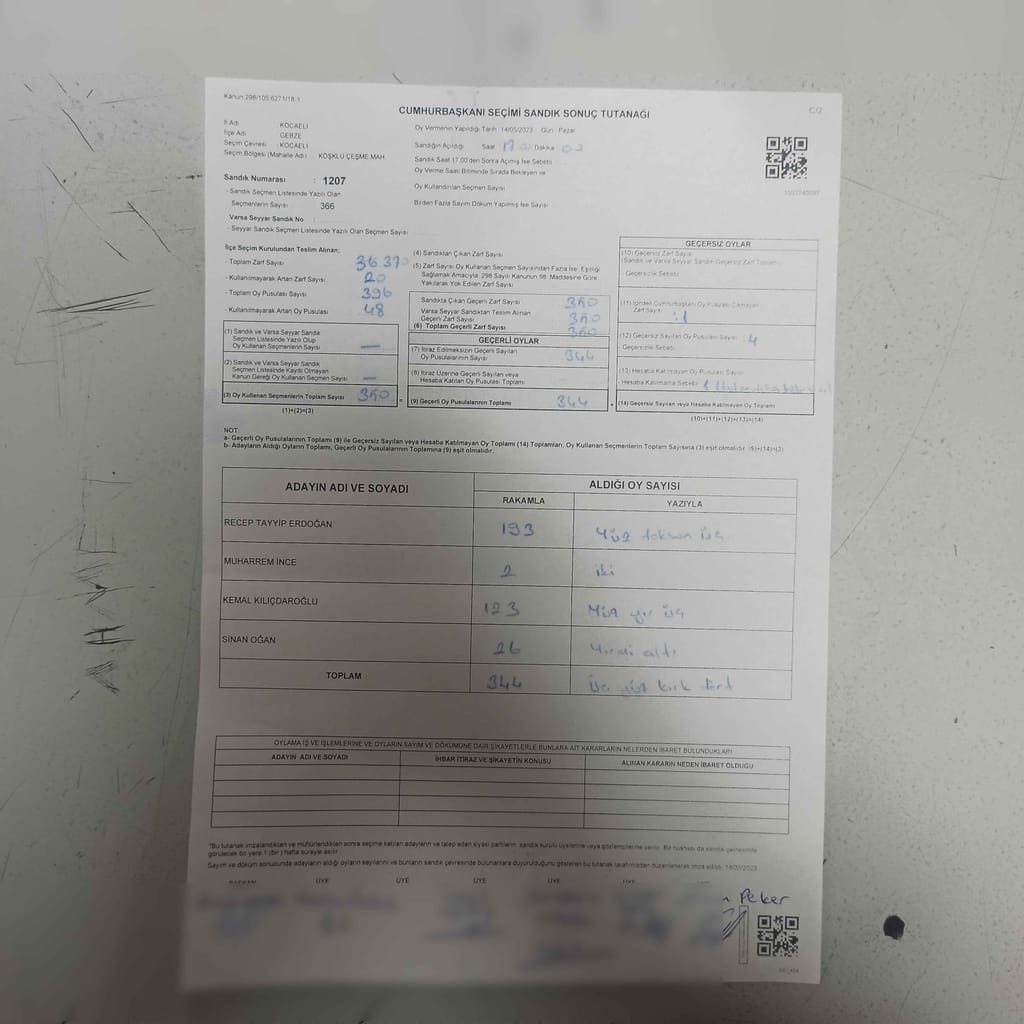 Kanun 298/105 6271/18-1
C/2
CUMHURBAŞKANI SEÇİMİ SANDIK SONUÇ TUTANAĞI
İl Adı KOCAELİ
İlçe Adı GEBZE
Seçim Çevresi : KOCAELİ
Seçim Bölgesi (Mahalle Adı) : KÖŞKLÜ ÇEŞME MAH
Sandık Numarası : 1207
- Sandık Seçmen Listesinde Yazılı Olan
Seçmenlerin Sayısı 366
Varsa Seyyar Sandık No
- Seyyar Sandık Seçmen Listesinde Yazılı Olan Seçmen Sayısı
Oy Vermenin Yapıldığı Tarih 14/05/2023 Gün : Pazar
Sandığın Açıldığı Saat 17 Dakika
Sandık Saat 17.00'den Sonra Açılmış İse Sebebi
Oy Verme Saati Bitiminde Sırada Bekleyen ve
Oy Kullandırılan Seçmen Sayısı
Birden Fazla Sayım Döküm Yapılmış İse Sayısı
İlçe Seçim Kurulundan Teslim Alınan;
- Toplam Zarf Sayısı
- Kullanılmayarak Artan Zarf Sayısı 20
- Toplam Oy Pusulası Sayısı 396
- Kullanılmayarak Artan Oy Pusulası 48
(1) Sandık ve Varsa Seyyar Sandık
Seçmen Listesinde Yazılı Olup
Oy Kullanan Seçmenlerin Sayısı —
(2) Sandık ve Varsa Seyyar Sandık
Seçmen Listesinde Kayıtlı Olmayan
Kanun Gereği Oy Kullanan Seçmen Sayısı —
(3) Oy Kullanan Seçmenlerin Toplam Sayısı 350
(1)+(2)=(3)
(4) Sandıktan Çıkan Zarf Sayısı
(5) Zarf Sayısı Oy Kullanan Seçmen Sayısından Fazla İse, Eşitliği
Sağlamak Amacıyla, 298 Sayılı Kanunun 98. Maddesine Göre
Yakılarak Yok Edilen Zarf Sayısı
Sandıkta Çıkan Geçerli Zarf Sayısı 350
Varsa Seyyar Sandıktan Teslim Alınan
Geçerli Zarf Sayısı 350
(6) Toplam Geçerli Zarf Sayısı 350
GEÇERLİ OYLAR
(7) İtiraz Edilmeksizin Geçerli Sayılan
Oy Pusulalarının Sayısı 344
(8) İtiraz Üzerine Geçerli Sayılan veya
Hesaba Katılan Oy Pusulası Toplamı
(9) Geçerli Oy Pusulalarının Toplamı 344
GEÇERSİZ OYLAR
(10) Geçersiz Zarf Sayısı
(Sandık ve Varsa Seyyar Sandık Geçersiz Zarf Toplamı)
Geçersizlik Sebebi
(11) İçinden Cumhurbaşkanı Oy Pusulası Çıkmayan
Zarf Sayısı : 1
(12) Geçersiz Sayılan Oy Pusulası Sayısı : 4
- Geçersizlik Sebebi
(13) Hesaba Katılmayan Oy Pusulası Sayısı
- Hesaba Katılmama Sebebi 1
(14) Geçersiz Sayılan veya Hesaba Katılmayan Oy Toplamı
(10)+(11)+(12)+(13)=(14)
NOT:
a- Geçerli Oy Pusulalarının Toplamı (9) ile Geçersiz Sayılan veya Hesaba Katılmayan Oy Toplamı (14) Toplamları, Oy Kullanan Seçmenlerin Toplam Sayısına (3) eşit olmalıdır. (9)+(14)=(3)
b- Adayların Aldığı Oyların Toplamı, Geçerli Oy Pusulalarının Toplamına (9) eşit olmalıdır.
ADAYIN ADI VE SOYADI ALDIĞI OY SAYISI
RAKAMLA YAZIYLA
RECEP TAYYİP ERDOĞAN 193 Yüz doksan üç
MUHARREM İNCE 2 iki
KEMAL KILIÇDAROĞLU 123 Yüz yir üç
SİNAN OĞAN 26 Yirmi altı
TOPLAM 344 Üç yüz kırk dört
OYLAMA İŞ VE İŞLEMLERİNE VE OYLARIN SAYIM VE DÖKÜMÜNE DAİR ŞİKAYETLERLE BUNLARA AİT KARARLARIN NELERDEN İBARET BULUNDUKLARI
ADAYIN ADI VE SOYADI İHBAR İTİRAZ VE ŞİKAYETİN KONUSU ALINAN KARARIN NEDEN İBARET OLDUĞU
*Bu tutanak imzalandıktan ve mühürlendikten sonra seçime katılan adayların ve talep eden siyasi partilerin sandık kurulu üyelerine veya gözlemcilerine verilir. Bir nüshası da sandık çevresinde
görülecek bir yere 1 (bir ) hafta süreyle asılır.
Sayım ve döküm sonucunda adayların aldığı oyların sayılarını ve bunların sandık çevresinde bulunanlara duyurulduğunu gösteren bu tutanak tarafımızdan düzenlenerek imza edildi. 14/05/2023
BAŞKAN ÜYE ÜYE ÜYE ÜYE ÜYE
Peker
AHMET